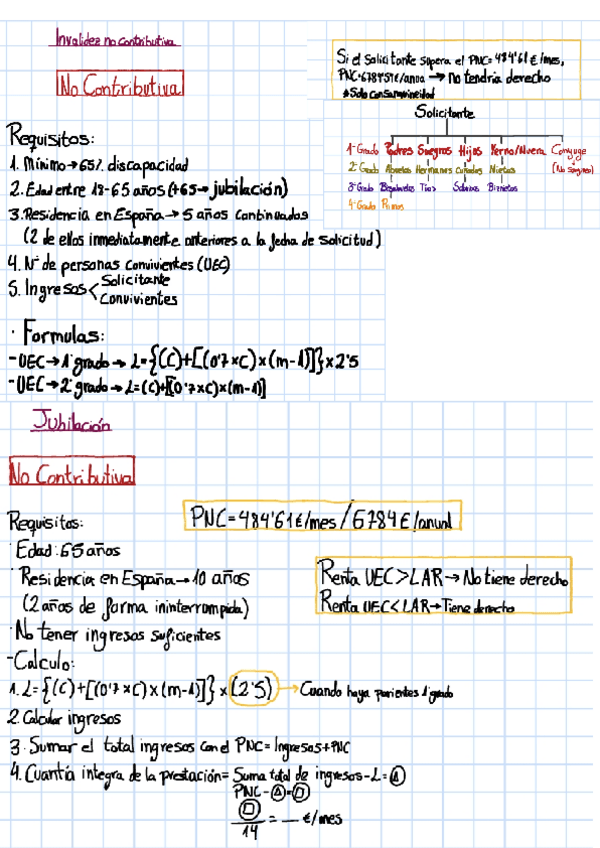 Invalidez no contributiva
No Contributiva
Si el solicitante supera el PNC=484'61€/mes,
PNC=6784'54€/anua → no tendría derecho
*Solo consanguineidad
Solicitante
1º Grado Padres Suegros Hijos Yerno/Nuera Cónyuge
2º Grado Abuelos Hermanos Cuñados Nietos (No sanguíneo)
3º Grado Bisabuelos Tíos Sobrinos Biznietos
4º Grado Primos
Requisitos:
1. Mínimo → 65% discapacidad
2. Edad entre 18-65 años (+65 → jubilación)
3. Residencia en España → 5 años continuados
(2 de ellos inmediatamente anteriores a la fecha de solicitud)
4. Nº de personas convivientes (UEC)
5. Ingresos < Solicitante
Convivientes
· Formulas:
- UEC → 1º grado → L={(C)+[(0'7×C)×(m-1)]}×2'5
- UEC → 2º grado → L=(C)+[(0'7×C)×(m-1)]
Jubilación
No Contributiva
PNC=484'61€/mes/6784€/anual
Requisitos:
· Edad: 65 años
· Residencia en España → 10 años
(2 años de forma ininterrumpida)
· No tener ingresos suficientes
Renta UEC>LAR → No tiene derecho
Renta UEC<LAR → Tiene derecho
- Calculo:
1. L={(C)+[(0'7×C)×(m-1)]}×(2'5) → Cuando haya parientes 1º grado
2. Calcular ingresos
3. Sumar el total ingresos con el PNC= Ingresos+PNC
4. Cuantía integra de la prestación= Suma total de ingresos-L=Δ
PNC-Δ=□
□
14 = __ €/mes